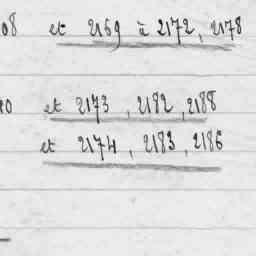 08 et 2169 à 2172, 2178
10 et 2173, 2182, 2188
et 2174, 2183, 2186